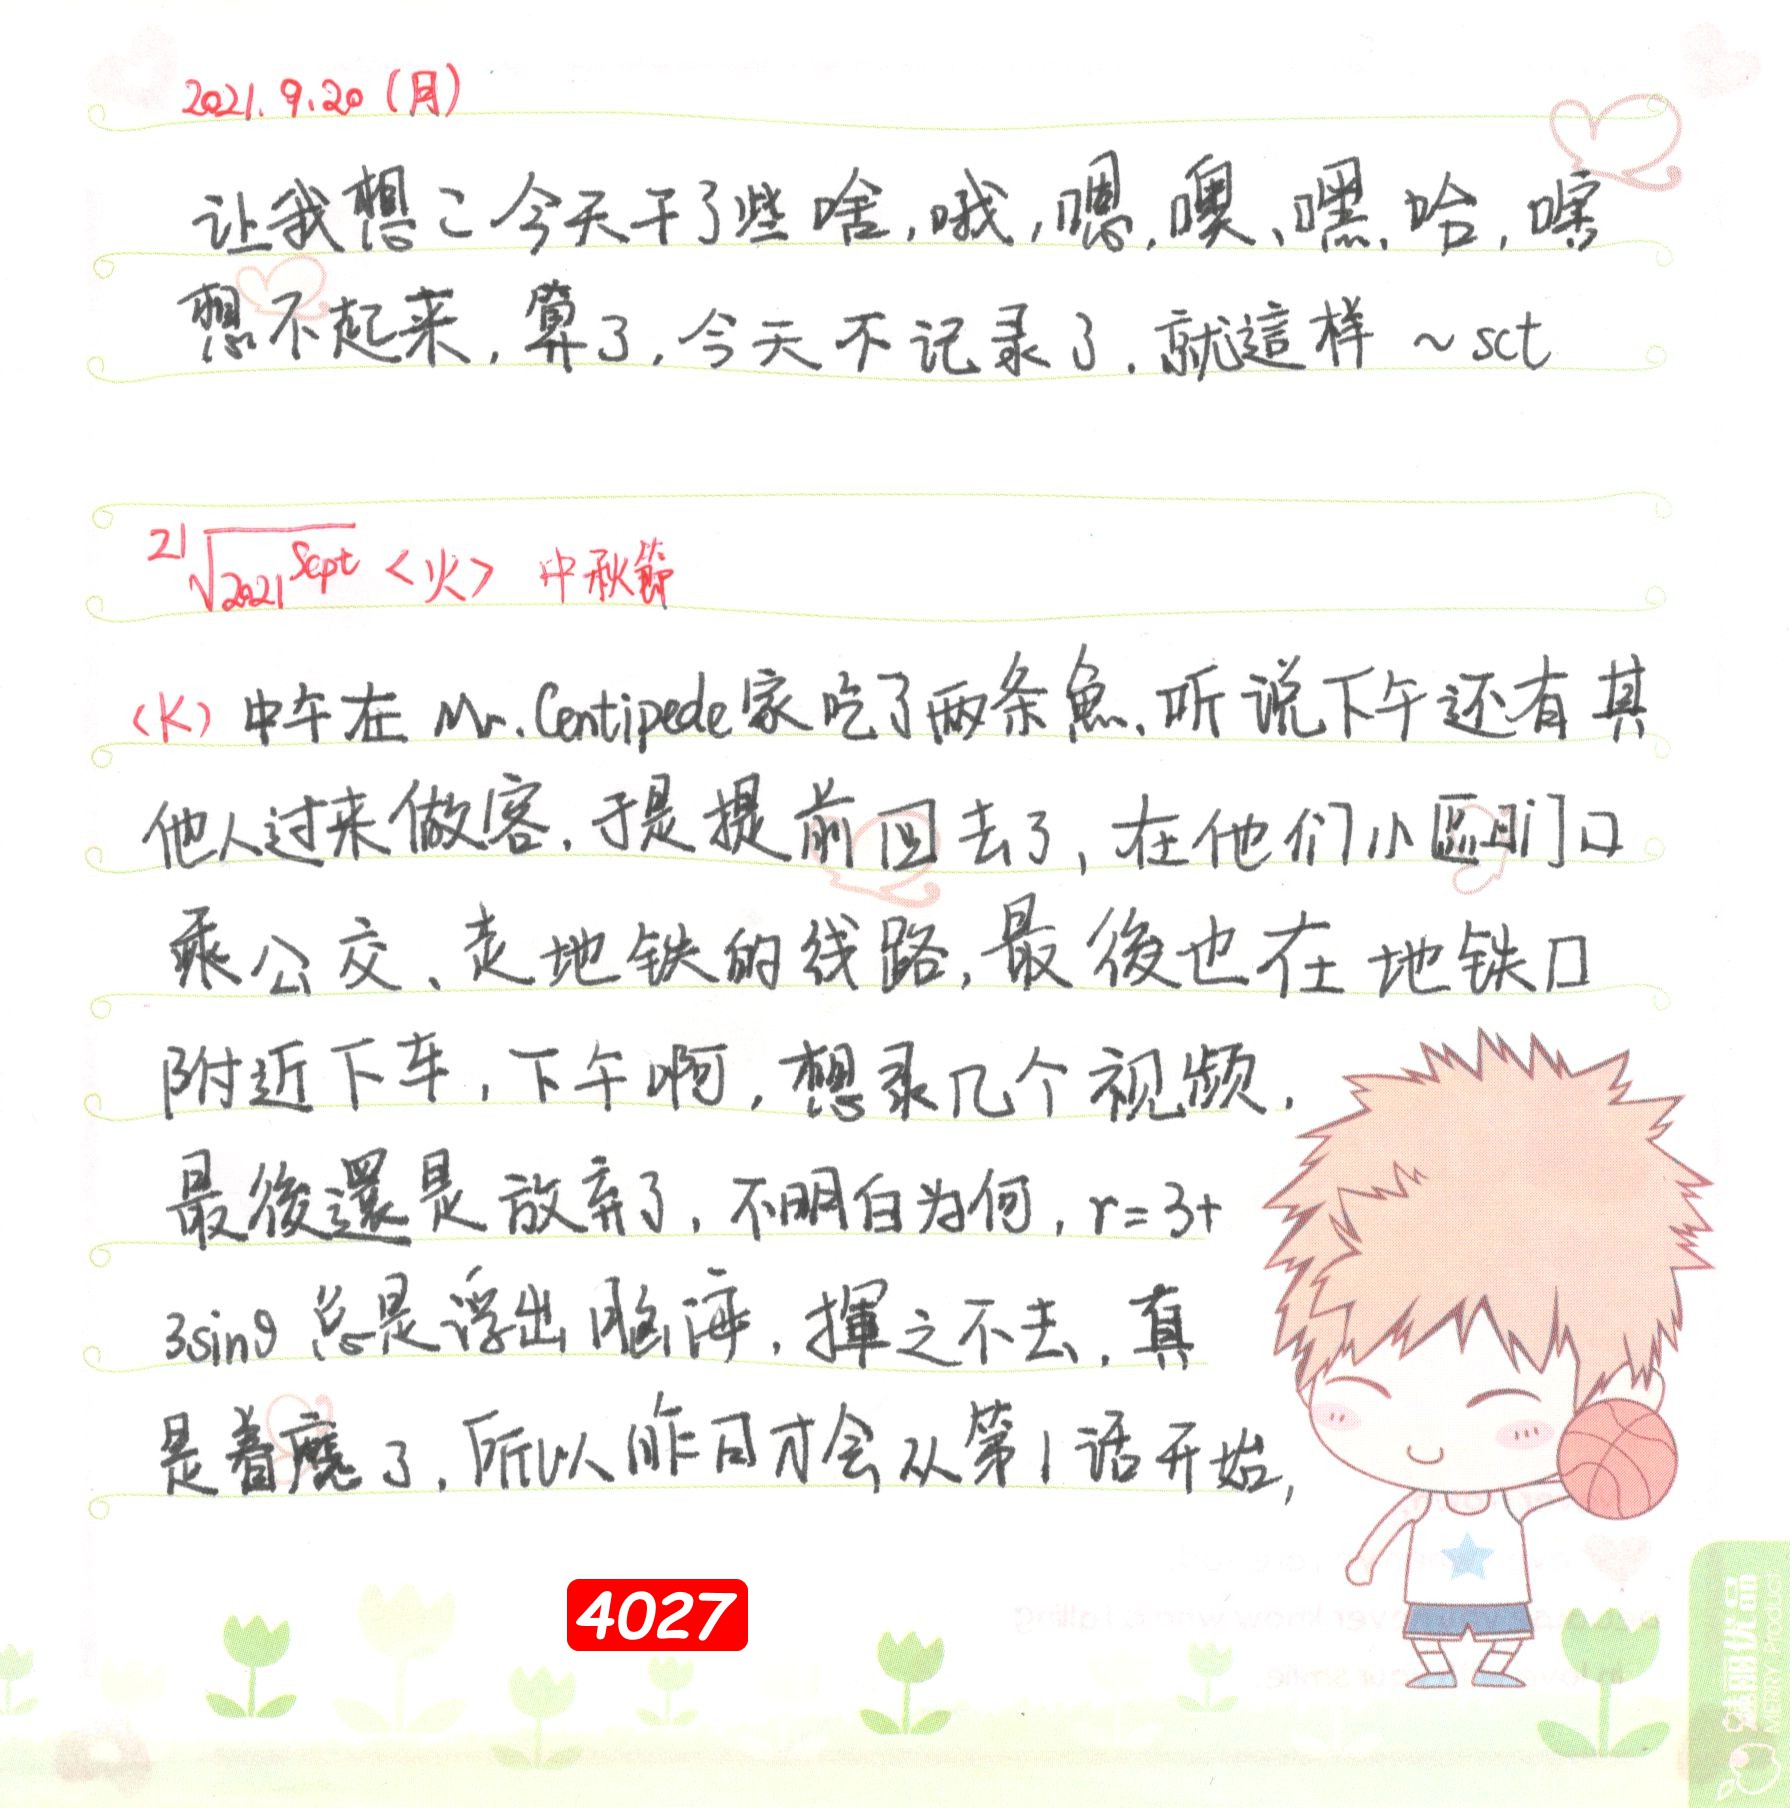 2021.9.20(月)
让我想々今天干了些啥,哦,嗯,噢、嘿、哈,嗐
想不起来,算了,今天不记录了.就這样 ~sct
21√2021^Sept <火> 中秋節
(K) 中午在 Mr.Centipede家吃了两条魚,听说下午还有其
他人过来做客,于是提前回去了,在他们小區门口
乘公交、走地铁的线路,最後也在地铁口
附近下车,下午啊,想录几个视频,
最後還是放弃了,不明白为何,r=3+
3sinθ总是浮出脑海,揮之不去,真
是着魔了,所以昨日才会从第1话开始,
4027
MERRY Product